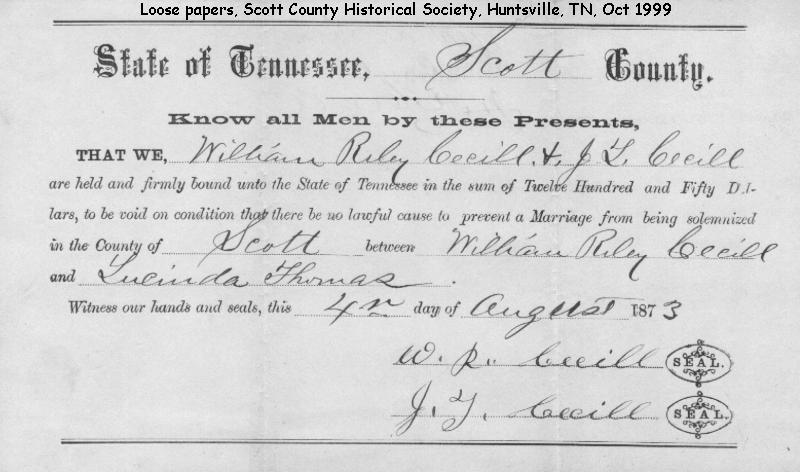 Loose papers, Scott County Historical Society, Huntsville, TN, Oct 1999
State of Tennessee, Scott County.
Know all Men by these Presents,
THAT WE, William Riley Cecill & J T Cecill
are held and firmly bound unto the State of Tennessee in the sum of Twelve Hundred and Fifty Dol-
lars, to be void on condition that there be no lawful cause to prevent a Marriage from being solemnized
in the County of Scott between William Riley Cecill
and Lucinda Thomas.
Witness our hands and seals, this 4 day of August 1873
W. R. Cecill SEAL.
J. T. Cecill SEAL.